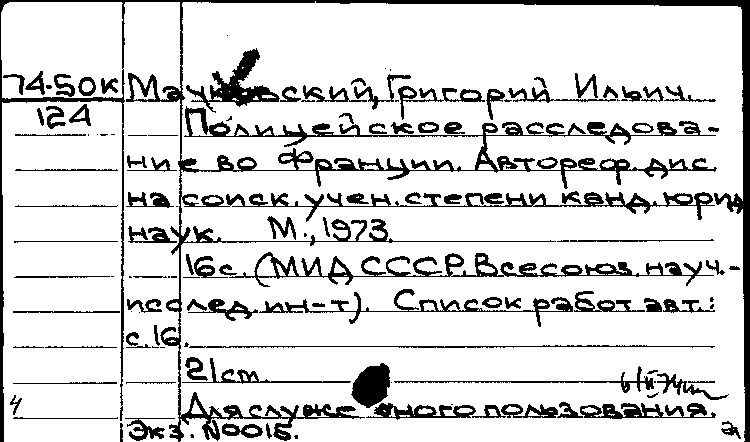 74-50к Мачковский, Григорий Ильич.
124 Полицейское расследова-
ние во Франции. Автореф. дис.
на соиск. учен. степени канд. юрид
наук. М., 1973.
16с. (МИД СССР. Всесоюз. науч.-
исслед. ин-т). Список работ авт.:
с. 16.
21 cm.
Для служебного пользования.
4
Экз. N0015.